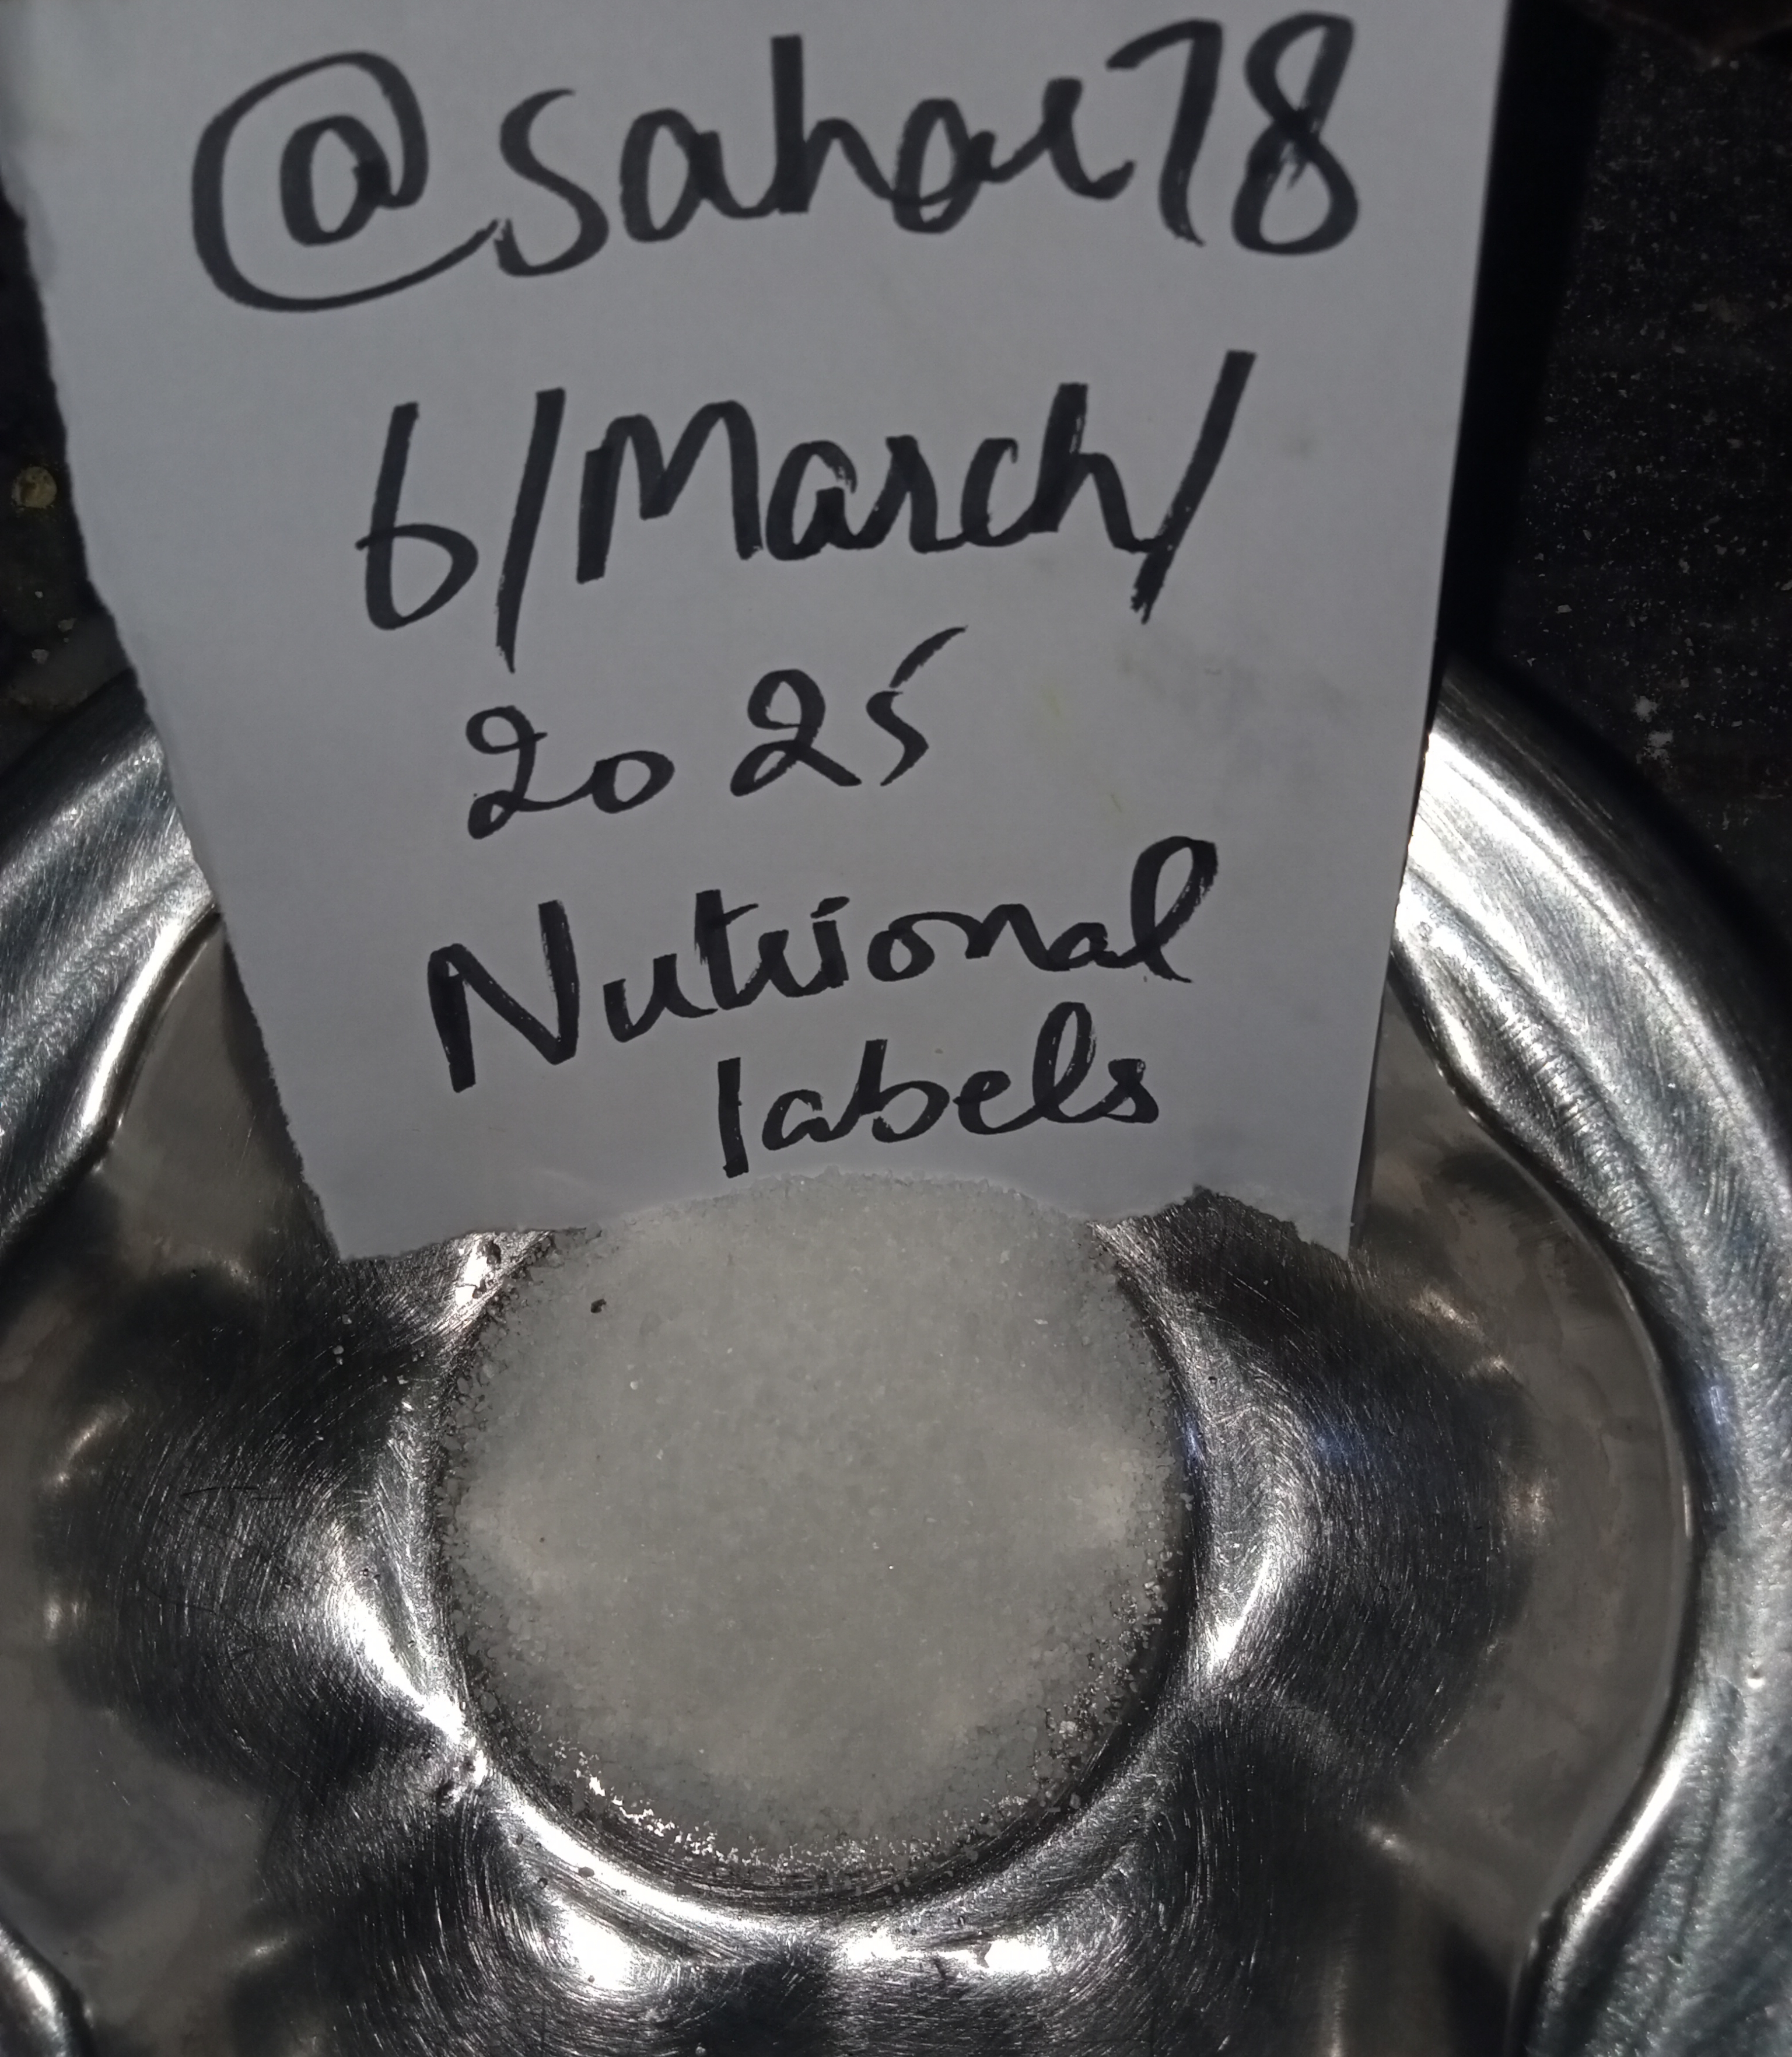 @sahar78
6/March/
2025
Nutrional
labels